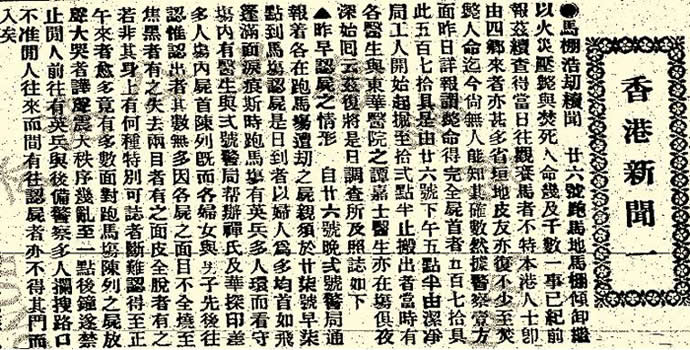 香港新聞一
●馬棚浩劫續聞　廿六號跑馬地馬棚傾卸繼
以火災壓斃與焚死人命幾及千數一事已紀前
報茲續查得當日往觀賽馬者不特本港人士卽
由四鄉來者亦甚多省垣地皮友亦復不少至焚
斃人命迄今尙無人能知其確數然據警察壹方
面昨日詳報謂斃命得完全屍首者五百七拾具
此五百七拾具是由廿六號下午五點半由潔淨
局工人開始起掘至拾弍點半止搬出者當時有
各醫生與東華醫院之譚嘉士醫生亦在塲俱夜
深始回云茲復將是日調查所及照誌如下
▲昨早認屍之情形　自廿六號晚弍號警局通
報着各在跑馬塲遭刧之屍親須於廿柒號早柒
點到馬塲認屍是日到者以婦人爲多均首如飛
蓬滿面淚痕斯時跑馬塲有英兵多人環而看守
塲内有醫生與弍號警局帮辦禪氏及華探印差
多人塲内屍首陳列既而各婦女與男子先後往
認惟認出者其數無多因各屍之面目不全燒至
焦黑者有之失去兩目者有之面皮全脫者有之
若非其身上有何種特別可誌者斷難認得至正
午來者愈多竟有多數面對跑馬塲陳列之屍放
聲大哭者譁聲震天秩序幾亂至一點後鐘遂禁
止閒人前往有英兵與後備警察多人攔搜路口
不准閒人往來而間有往認屍者亦不得其門而
入矣